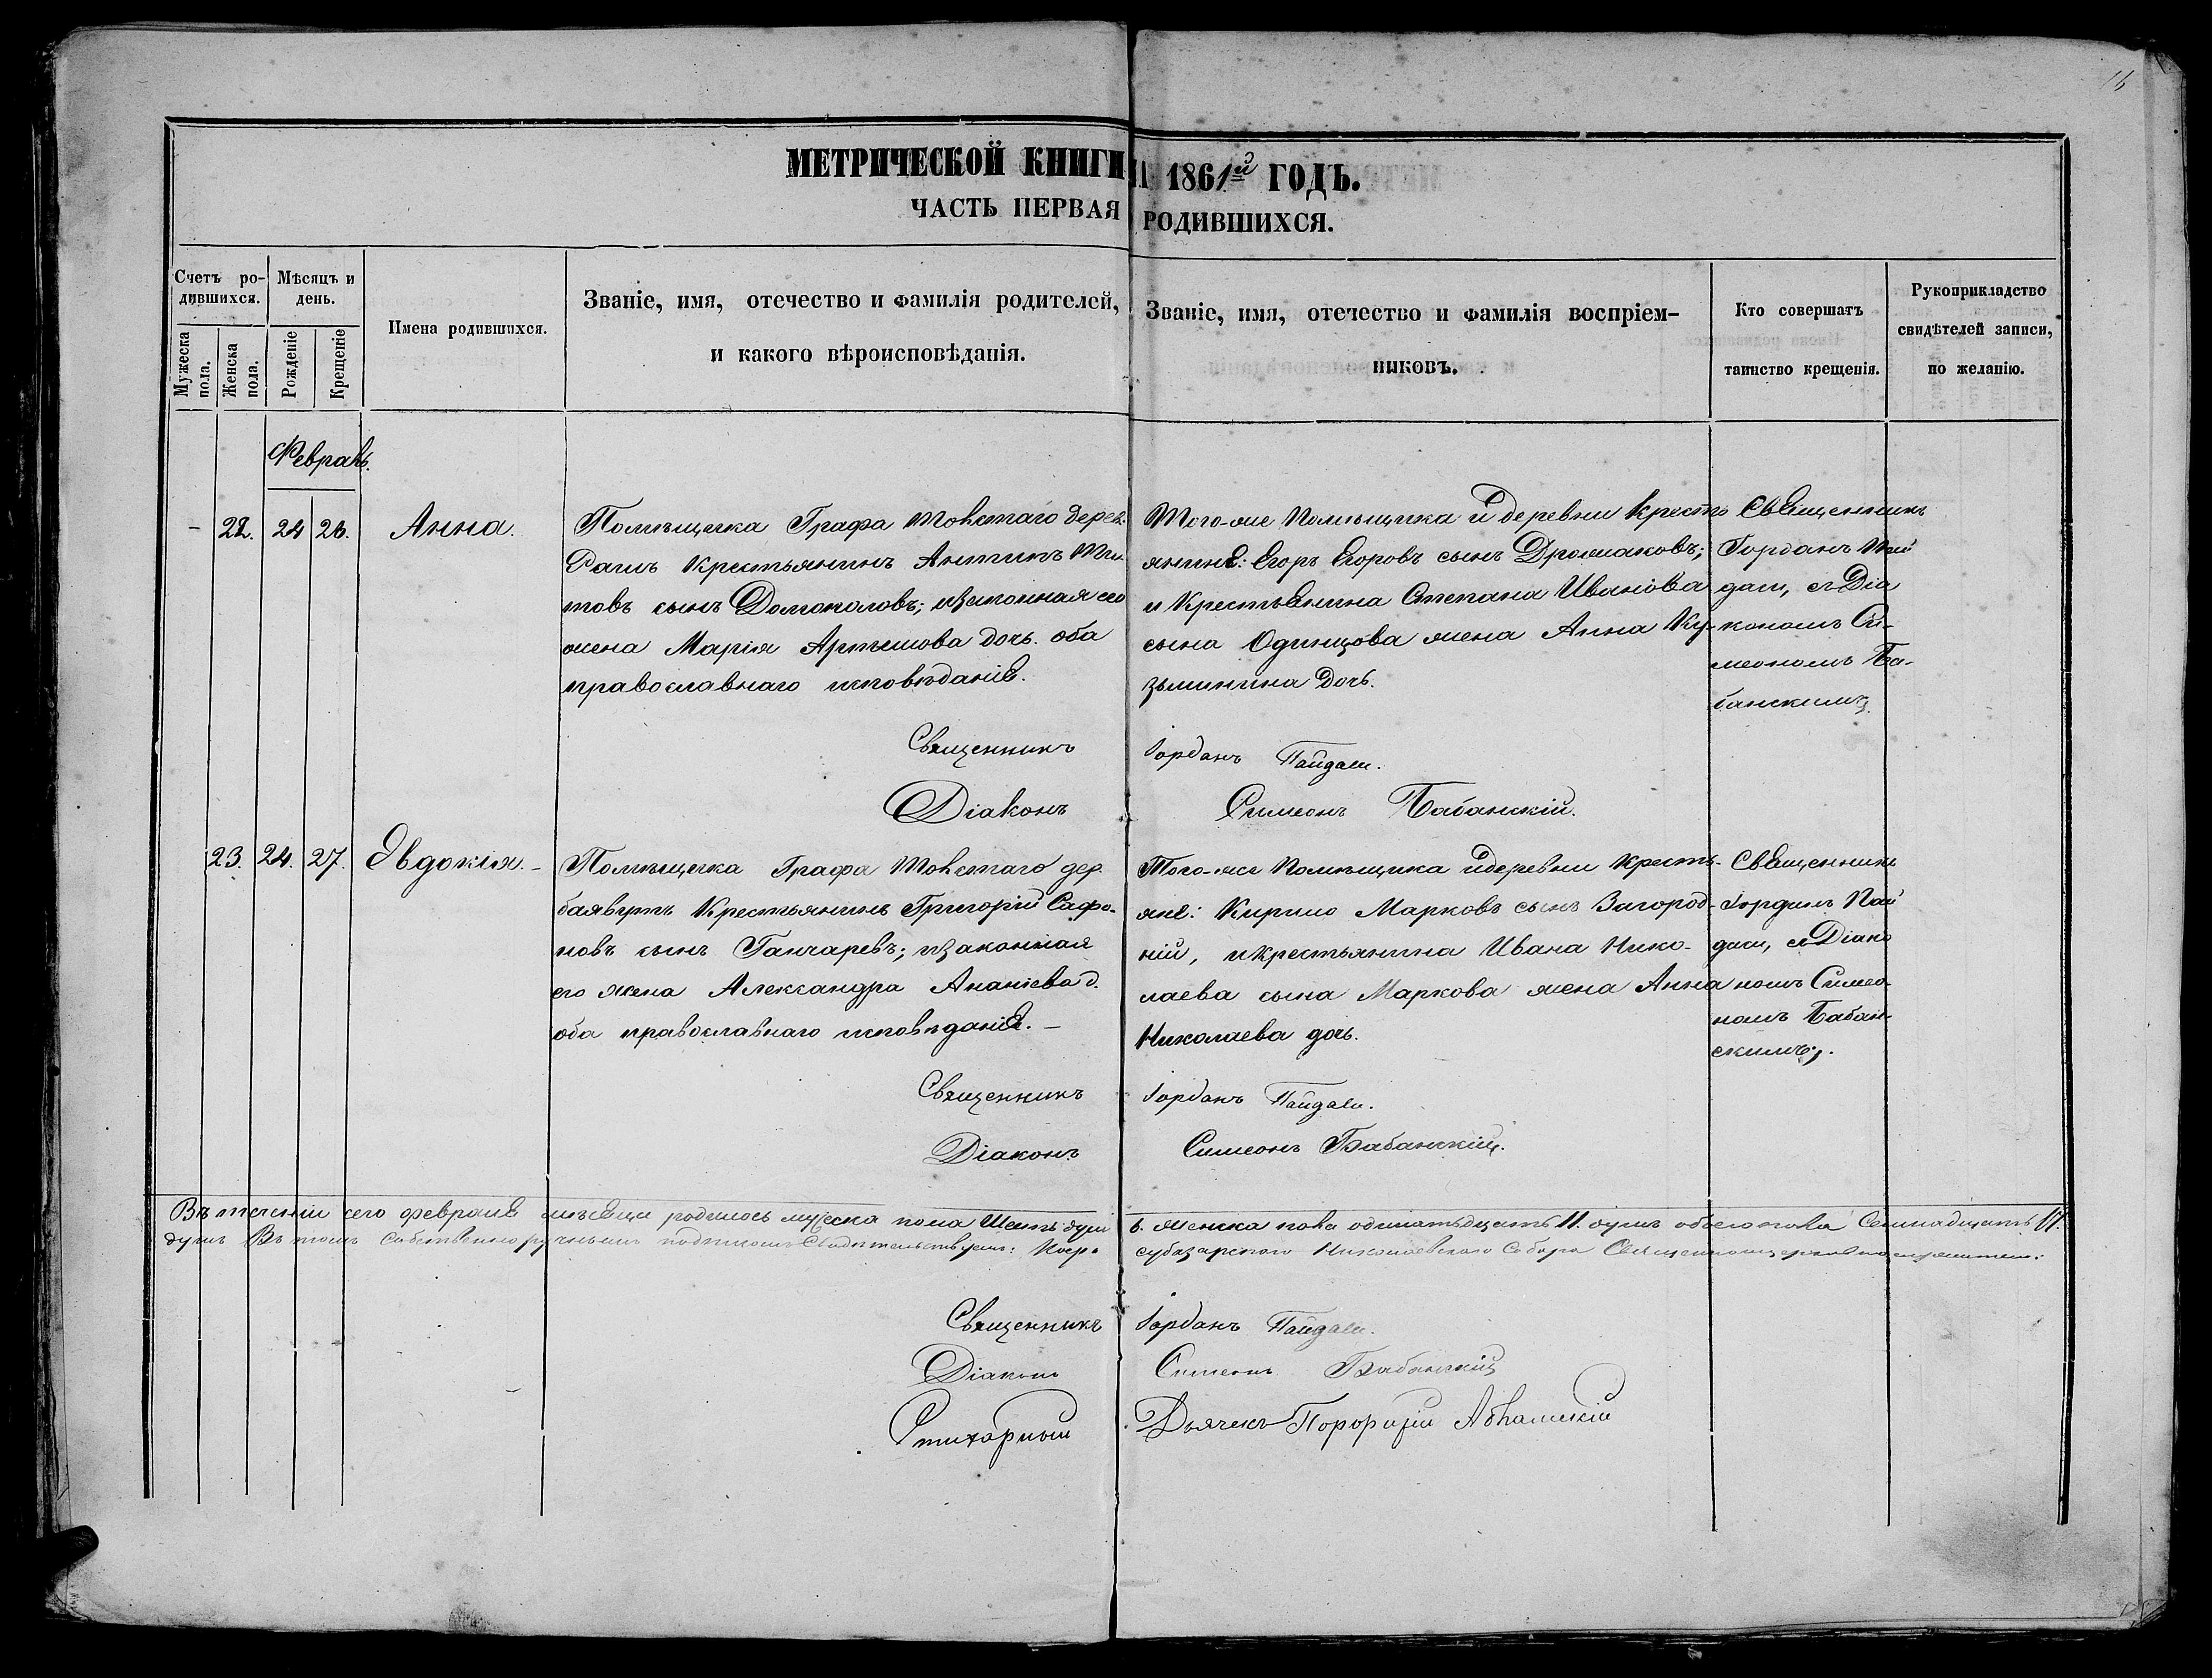 МЕТРИЧЕСКОЙ КНИГИ
А 1861й ГОДЪ.
ЧАСТЬ ПЕРВАЯ
РОДИВШИХСЯ.
Счетъ ро-
дившихся.
Мужеска
пола.
Женска
пола.
Мѣсяцъ и
день.
Рожденіе
Крещеніе
Имена родившихся.
Званіе, имя, отечество и фамилія родителей,
и какого вѣроисповѣданія.
Званіе, имя, отечество и фамилія воспріем-
никовъ.
Кто совершатъ
таинство крещенія.
Рукоприкладство
свидѣтелей записи,
по желанію.
Февраль.
- 22. 24 26. Анна.
Помѣщика Графа Толстаго дерев.
крестьянинъ Антипъ Ти-
товъ сынъ Домоколовъ; изаконная его
жена Марія Артемова дочь. оба
православнаго исповѣданія.
Того-же Помѣщика и деревни крестъ
янинѣ: Егоръ Егоровъ сынъ Дромаковъ;
и Крестьянина Степана Иванова
сына Одинцова жена Анна Ку-
зьминина дочь.
Священникъ
Іорданъ Пай
дали, съ Діа
кономъ Си-
меономъ Ба-
банскимъ.
Священникъ
Іорданъ Пайдали.
Діаконъ
Симеонъ Бабанскій.
23. 24. 27. Евдокія. -
Помѣщика Графа Толстаго дер.
баявутъ Крестьянинъ Григорій Сафо-
новъ сынъ Ганчаревъ; изаконная
его жена Александра Ананіева д.
оба православнаго исповѣданія. -
Того-же Помѣщика идеревни кресть-
яне: Кирило Марковъ сынъ Загород-
ній, икрестьянина Ивана Нико-
лаева сына Маркова жена Анна
Николаева дочь.
Священникъ
Іорданъ Пай
дали, съ Діако
номъ Симео-
номъ Бабан-
скимъ.
Священникъ
Іорданъ Пайдали.
Діаконъ
Симеонъ Бабанскій.
Въ теченіи сего февраля мѣсяца родилось мужеска пола Шесть душъ
6. женска пола одинатьдцать 11. душъ обоего пола Семнадцать 17.
душъ Въ томъ собственноручнымъ подписомъ Свидѣтельствуемъ:
Николаевскаго Собора
Священникъ
Іорданъ Пайдали.
Діаконъ
Симеонъ Бабанскій
Стихарный
Дьячекъ Порфирій